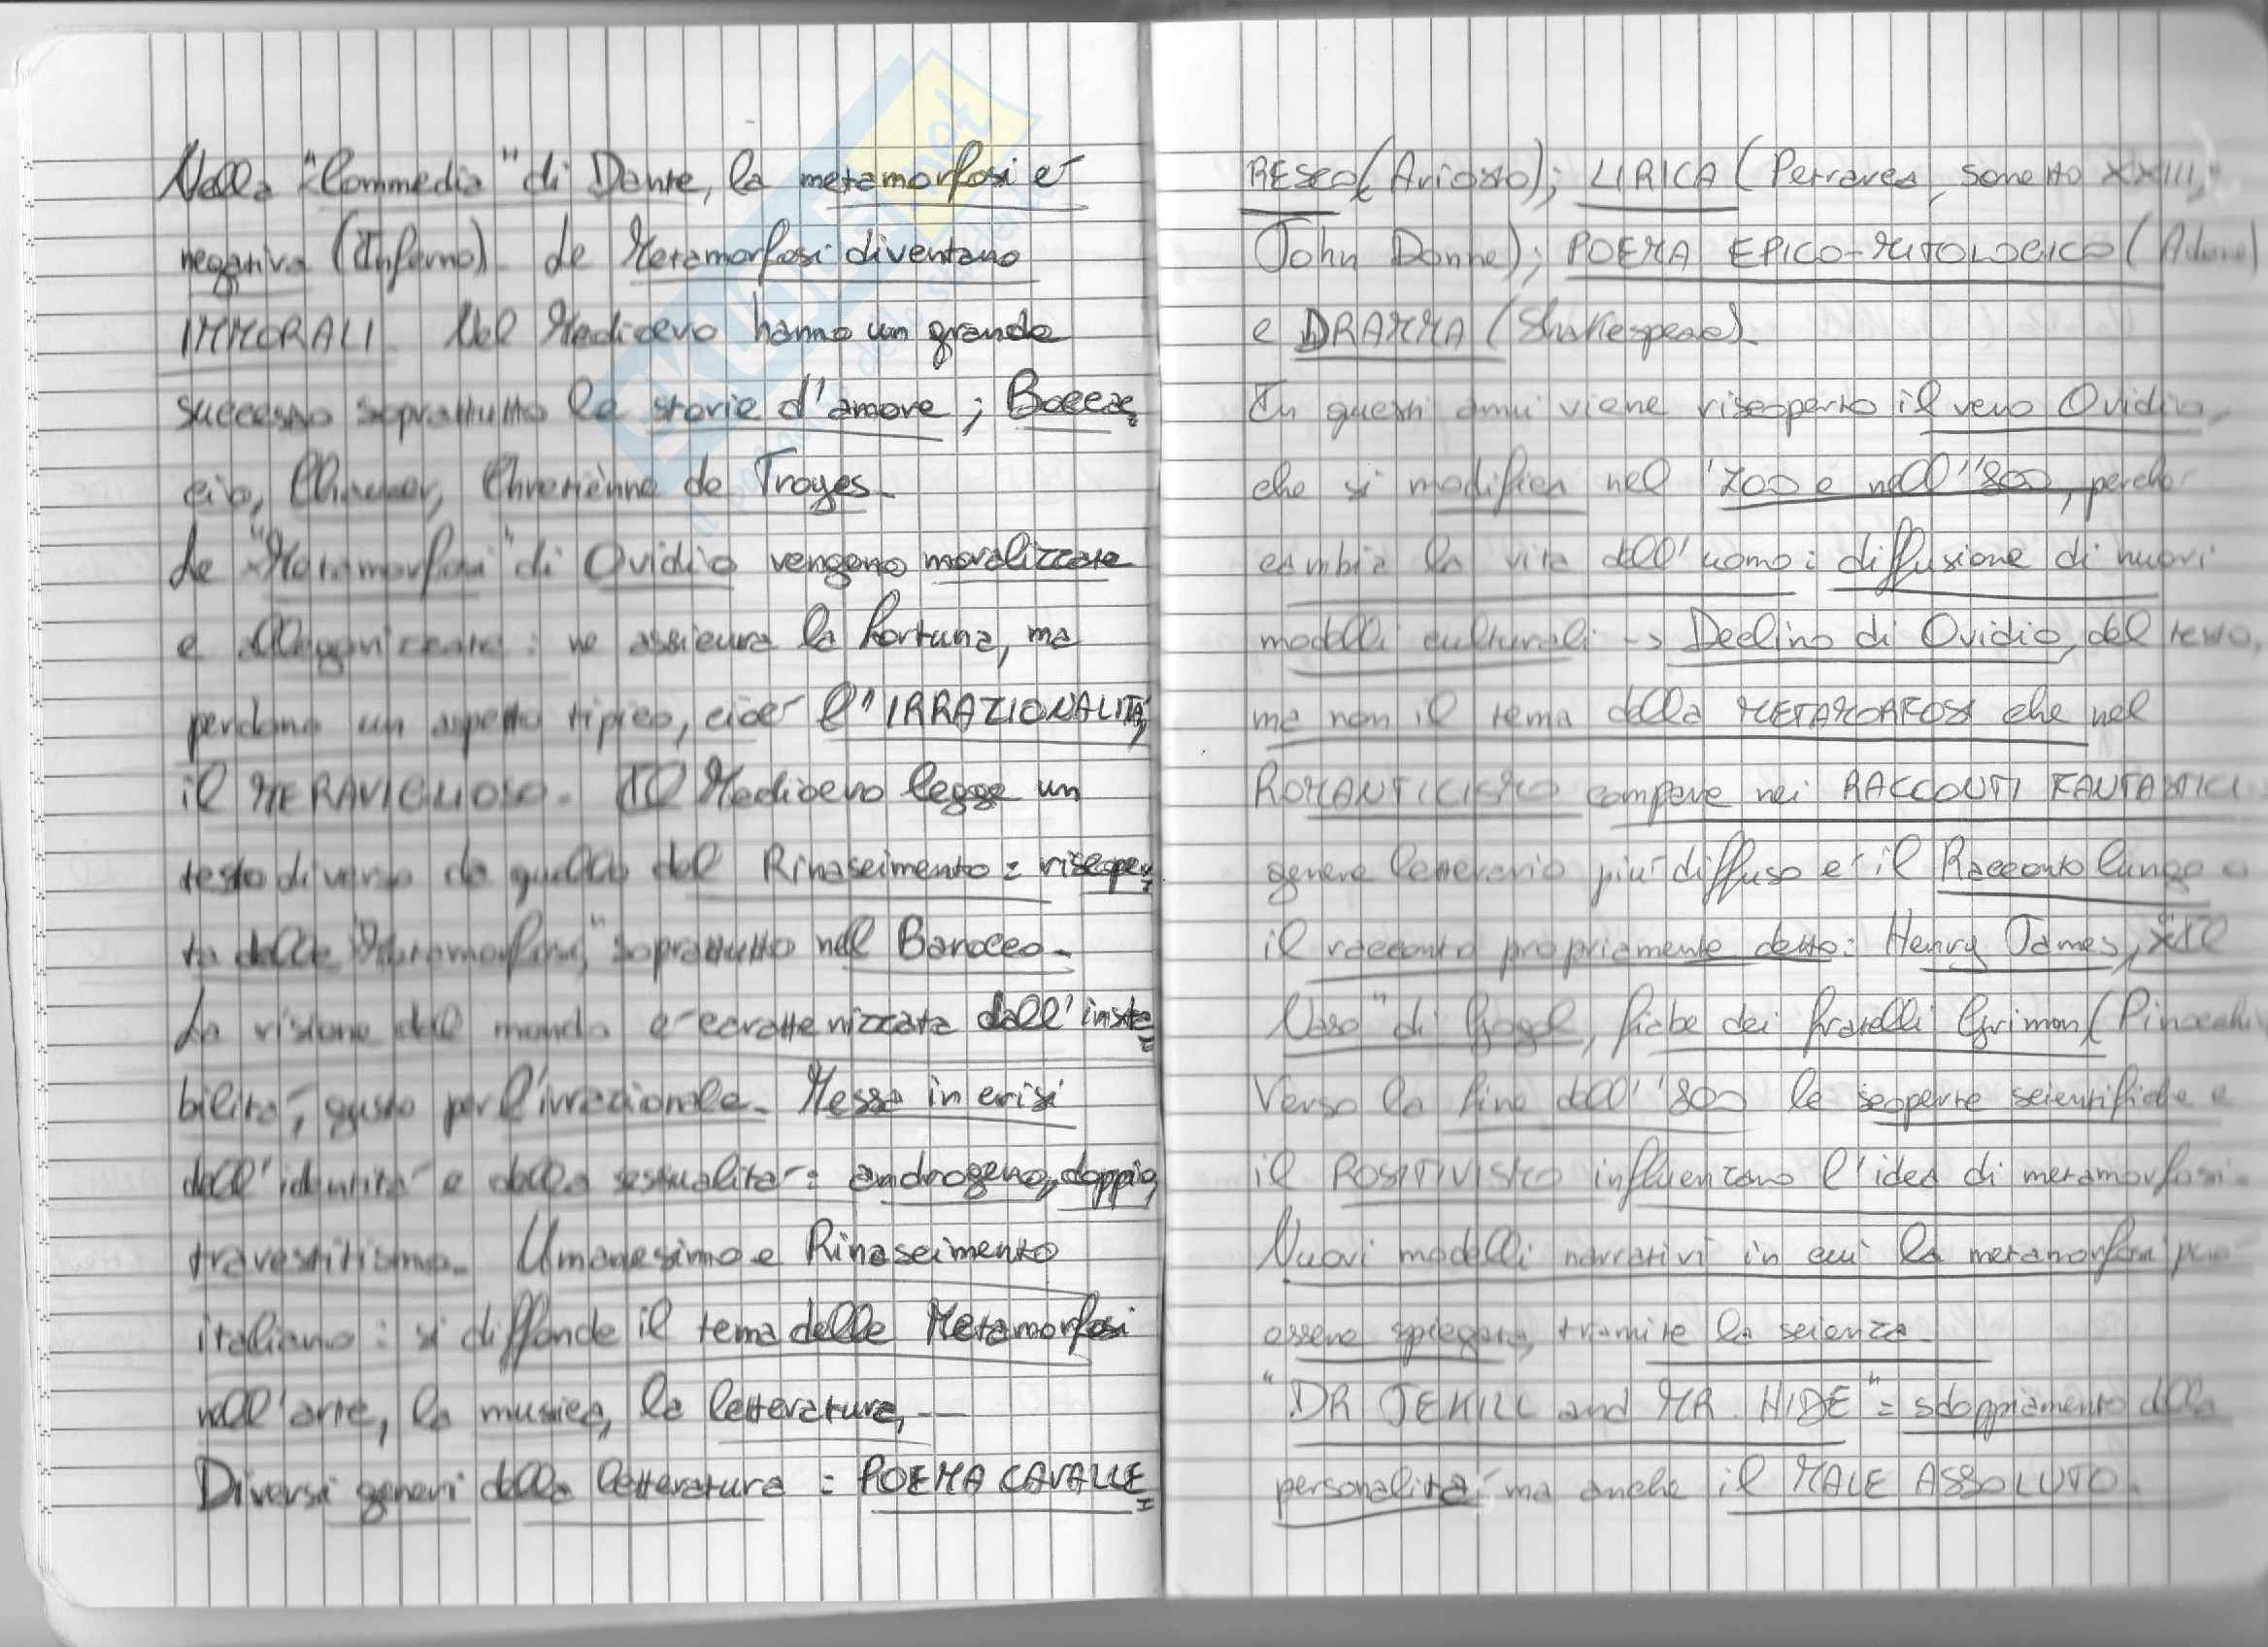 Nella "Commedia" di Dante, la metamorfosi é
negativa (Inferno). Le Metamorfosi diventano
IMMORALI. Nel Medioevo hanno un grande
successo soprattutto le storie d'amore; Boccac
cio, Chaucer, Chretiènne de Troyes.
Le "Metamorfosi" di Ovidio vengono moralizzate
e allegorizzate: ne assicura la fortuna, ma
perdono un aspetto tipico, cioé l'IRRAZIONALITÁ,
il MERAVIGLIOSO. Il Medioevo legge un
testo diverso da quello del Rinascimento: riscoper
ta delle "Metamorfosi," soprattutto nel Barocco.
La visione del mondo é caratterizzata dall'insta
bilitá, gusto per l'irrazionale. Messa in crisi
dell'identitá e della sessualitá: androgeno, doppio,
travestitismo. Umanesimo e Rinascimento
italiano: si diffonde il tema delle Metamorfosi
nell'arte, la musica, la letteratura,
Diversi generi della letteratura: POEMA CAVALLE
RESCO (Ariosto); LIRICA (Petrarca, sonetto XXIII,
John Donne); POEMA EPICO-MITOLOGICO (Adone)
e DRAMMA (Shakespeare).
In questi anni viene riscoperto il vero Ovidio,
che si modifica nel '700 e nell''800, perché
cambia la vita dell'uomo: diffusione di nuovi
modelli culturali -> Declino di Ovidio, del testo,
ma non il tema della METAMORFOSI che nel
ROMANTICISMO compare nei RACCONTI FANTASTICI
genere letterario piú diffuso é il Racconto lungo o
il racconto propriamente detto: Henry James, "Il
Naso" di Gogol, fiabe dei fratelli Grimm (Pinocchio
Verso la fine dell''800 le scoperte scientifiche e
il POSITIVISMO influenzano l'idea di metamorfosi.
Nuovi modelli narrativi in cui la metamorfosi puó
essere spiegata, tramite la scienza.
"DR JEKILL and MR. HIDE" = sdoppiamento della
personalitá, ma anche il MALE ASSOLUTO.